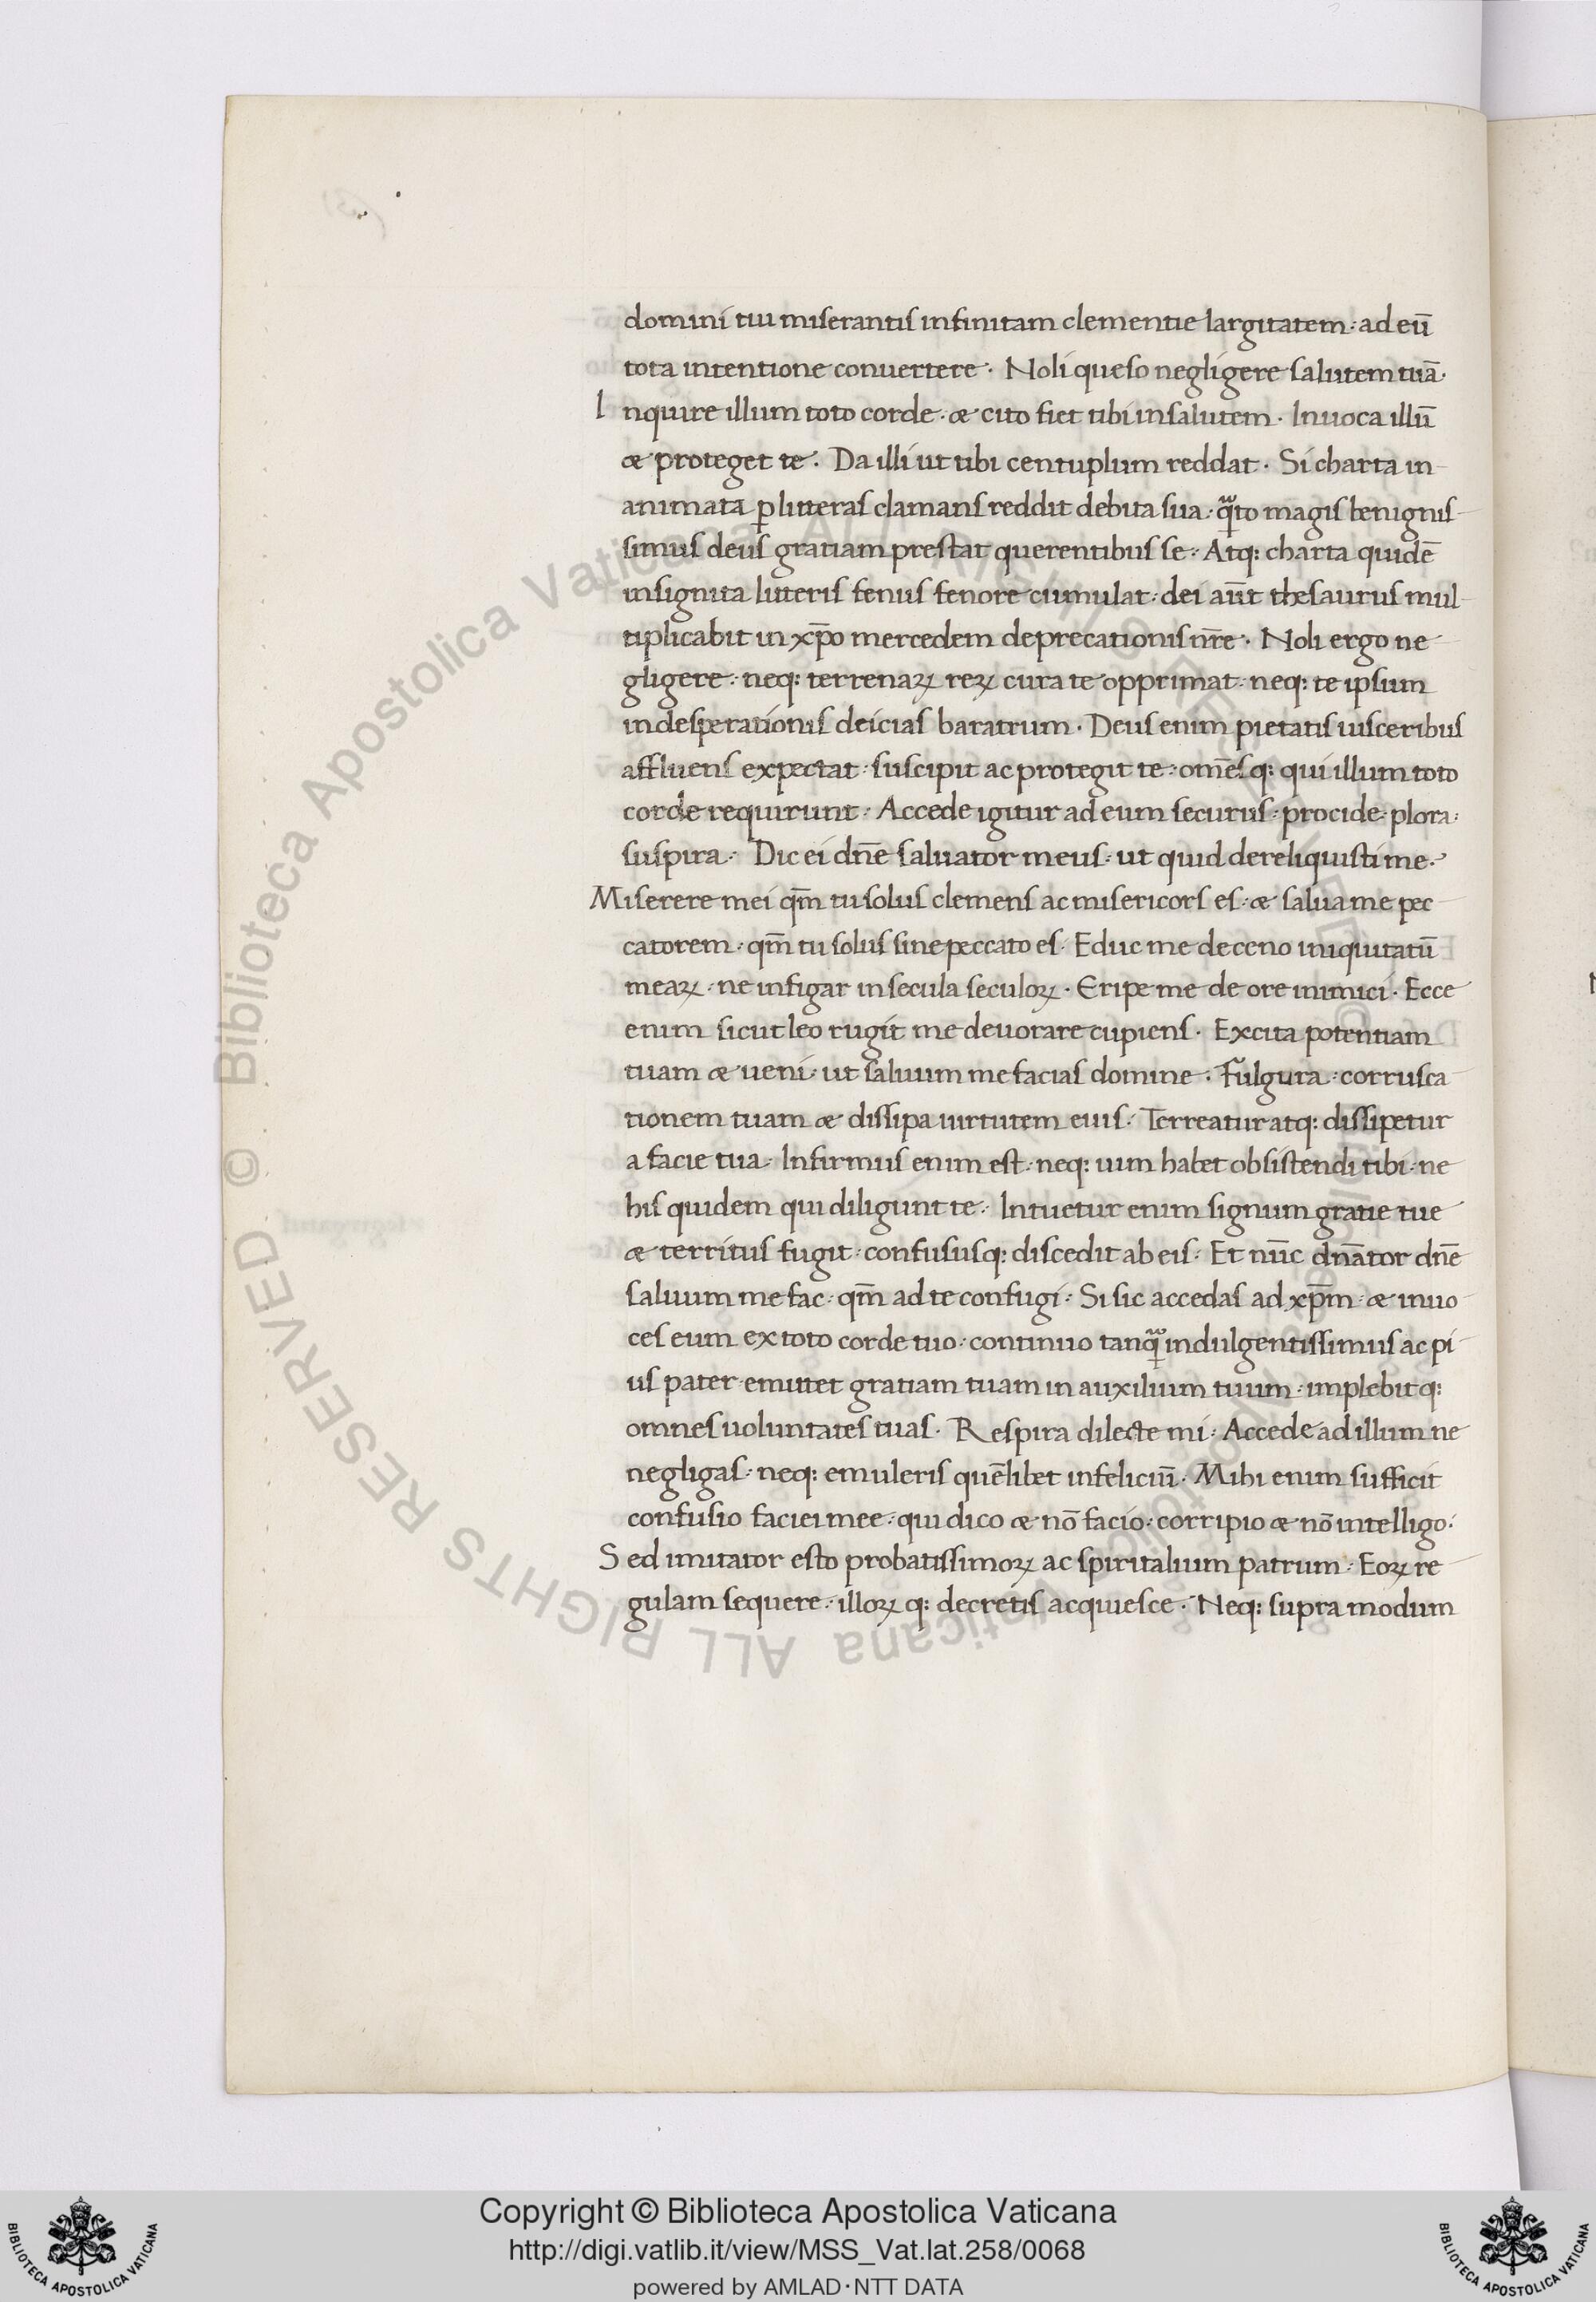 domini tui miserantis infinitam clementie largitatem · ad eū
tota intentione conuertere · Noli queso negligere salutem tuā ·
Inquire illum toto corde · æ cito fiet tibi in salutem · Inuoca illū
æ proteget te · Da illi ut tibi centuplum reddat · Si charta in
animata ꝑ litteras clamans reddit debita sua · qᷓto magis benignis
simus deus gratiam prestat querentibus se · Atq: charta quidē
insignita litteris fenus fenore cumulat · dei aūt thesaurus mul
tiplicabit in xp̄o mercedem deprecationis nr̄e · Noli ergo ne
gligere · neq: terrenaꝝ reꝝ cura te opprimat · neq: te ipsum
in desperationis deicias baratrum · Deus enim pietatis uisceribus
affluens expectat · suscipit ac protegit te · om̄esq: qui illum toto
corde requirunt · Accede igitur ad eum securus · procide · plora ·
suspira · Dic ei dn̄e saluator meus · ut quid dereliquisti me ·
Miserere mei qm̄ tu solus clemens ac misericors es · æ salua me pec
catorem · qm̄ tu solus sine peccato es · Educ me de ceno iniquitatū
meaꝝ · ne infigar in secula seculoꝝ · Eripe me de ore inimici · Ecce
enim sicut leo rugit me deuorare cupiens · Excita potentiam
tuam æ ueni · ut saluum me facias domine · Fulgura · corrusca
tionem tuam æ dissipa uirtutem eius · Terreatur atq: dissipetur
a facie tua · Infirmus enim est · neq: uim habet obsistendi tibi · ne
his quidem qui diligunt te · Intuetur enim signum gratie tue
æ territus fugit · confususq: discedit ab eis · Et nūc dn̄ator dn̄e
saluum me fac · qm̄ ad te confugi · Si sic accedas ad xp̄m · æ inuo
ces eum ex toto corde tuo · continuo tanqᷓ indulgentissimus ac pi
us pater emittet gratiam tuam in auxilium tuum · implebitq:
omnes uoluntates tuas · Respira dilecte mi · Accede ad illum ne
negligas · neq: emuleris quēlibet infeliciū · Mihi enim sufficit
confusio faciei mee · qui dico æ nō facio · corripio æ nō intelligo ·
Sed imitator esto probatissimoꝝ ac spiritalium patrum · Eoꝝ re
gulam sequere · illoꝝ q: decretis acquiesce · Neq: supra modum
© Biblioteca Apostolica Vaticana ALL RIGHTS RESERVED © Biblioteca Apostolica Vaticana ALL RIGHTS RESERVED
Copyright © Biblioteca Apostolica Vaticana
http://digi.vatlib.it/view/MSS_Vat.lat.258/0068
powered by AMLAD·NTT DATA
BIBLIOTECA APOSTOLICA VATICANA
BIBLIOTECA APOSTOLICA VATICANA